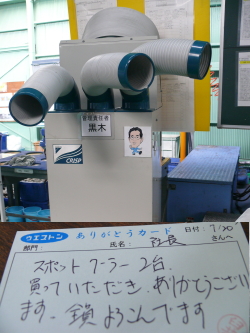 管理責任者
黒木
CRISP
ウエストン ありがとうカード 日付: 7/20
部門 氏名: 社長 さんへ
スポットクーラー2台
買っていただき、ありがとうござい
ます。鎖よろこんでます